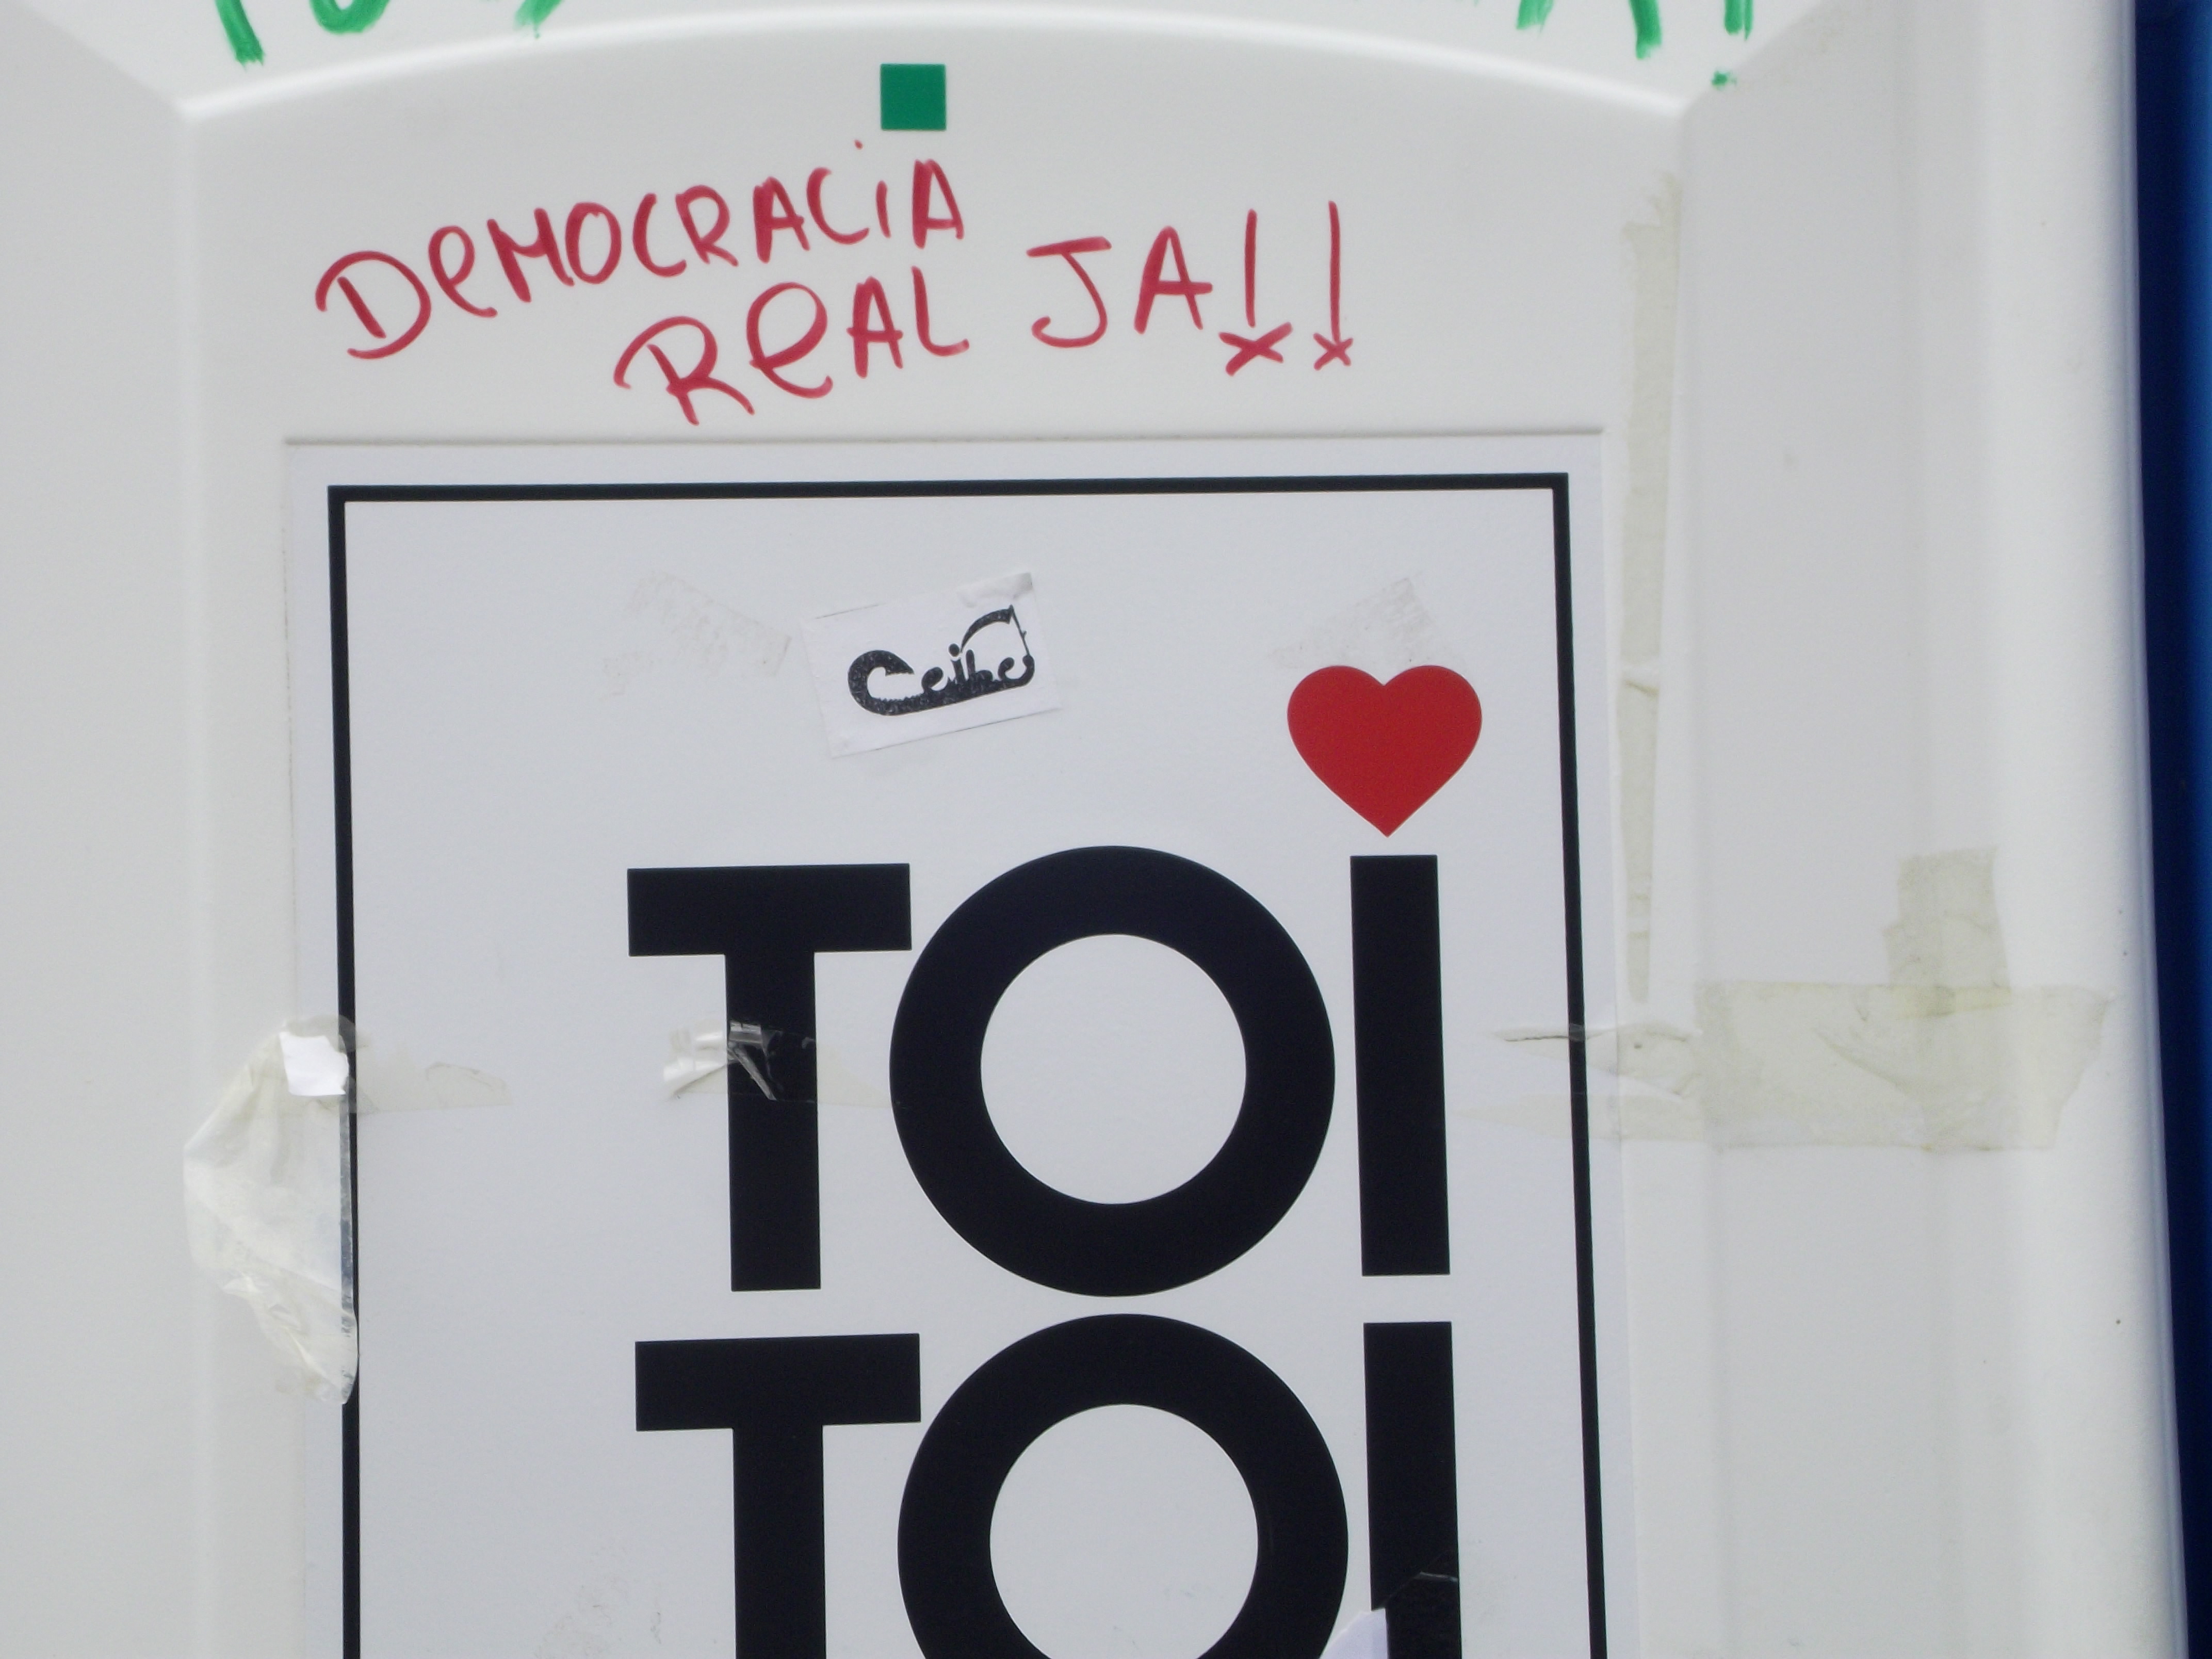 DeMOCRACiA
ReAL JA!!
Ceibe
TOI
TOI